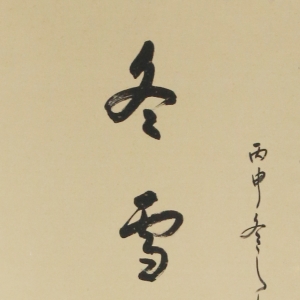 冬雪
丙申冬